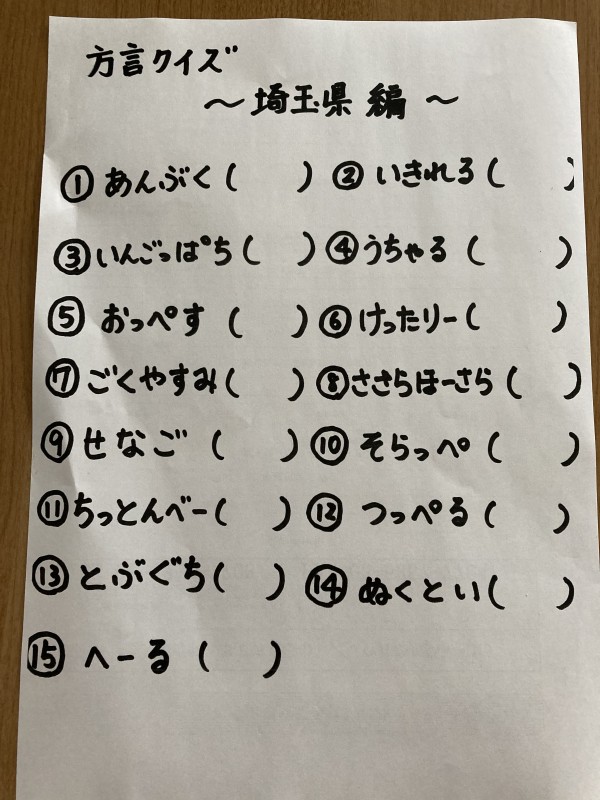 方言クイズ
〜埼玉県 編〜
①あんぶく( ) ②いきれる( )
③いんごっぱち( ) ④うちゃる( )
⑤おっぺす( ) ⑥けったりー( )
⑦ごくやすみ( ) ⑧ささらほーさら( )
⑨せなご( ) ⑩そらっぺ( )
⑪ちっとんべー( ) ⑫つっぺる( )
⑬とぶぐち( ) ⑭ぬくとい( )
⑮へーる( )